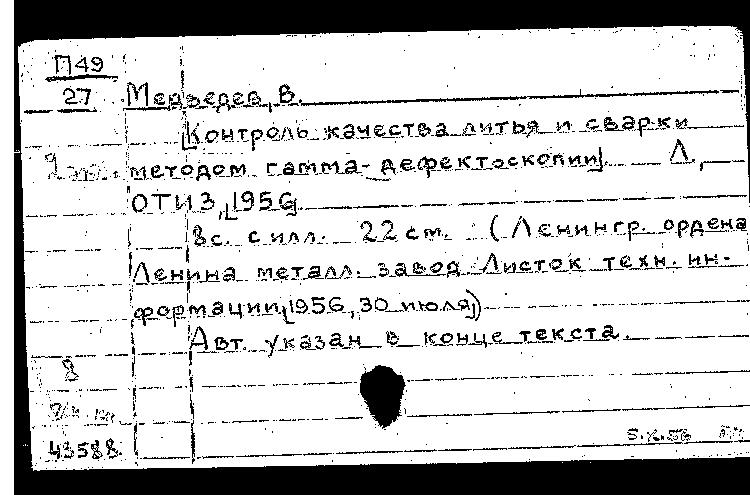 П49
27 Медведев, В.
[Контроль качества литья и сварки
2 экз. методом гамма-дефектоскопии]. Л.,
ОТИЗ, [1956]
8с. с илл. 22 см. (Ленингр. ордена
Ленина металл. завод. Листок техн. ин-
формации, [1956, 30 июля])
Авт. указан в конце текста.
8
43588.
5.X.56